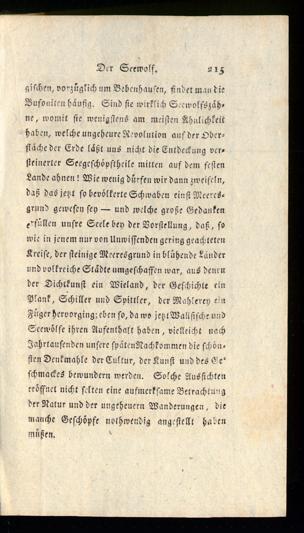 Der Seewolf. 215
gischen, vorzüglich um Bebenhausen, findet man die
Bufoniten häufig. Sind sie wirklich Seewolfszäh-
ne, womit sie wenigstens am meisten Ähnlichkeit
haben, welche ungeheure Revolution auf der Ober-
fläche der Erde läßt uns nicht die Entdeckung ver-
steinerter Seegeschöpftheile mitten auf dem festen
Lande ahnen! Wie wenig dürfen wir dann zweifeln,
daß das jetzt so bevölkerte Schwaben einst Meeres-
grund gewesen sey — und welche große Gedanken
erfüllen unsre Seele bey der Vorstellung, daß, so
wie in jenem nur von Unwissenden gering geachteten
Kreise, der steinige Meeresgrund in blühende Länder
und volkreiche Städte umgeschaffen war, aus denen
der Dichtkunst ein Wieland, der Geschichte ein
Plank, Schiller und Spittler, der Mahlerey ein
Füger hervorging; eben so, da wo jetzt Wallfische und
Seewölfe ihren Aufenthalt haben, vielleicht nach
Jahrtausenden unsere späten Nachkommen die schön-
sten Denkmahle der Cultur, der Kunst und des Ge-
schmackes bewundern werden. Solche Aussichten
eröffnet nicht selten eine aufmerksame Betrachtung
der Natur und der ungeheuern Wanderungen, die
manche Geschöpfe nothwendig angestellt haben
müßen.